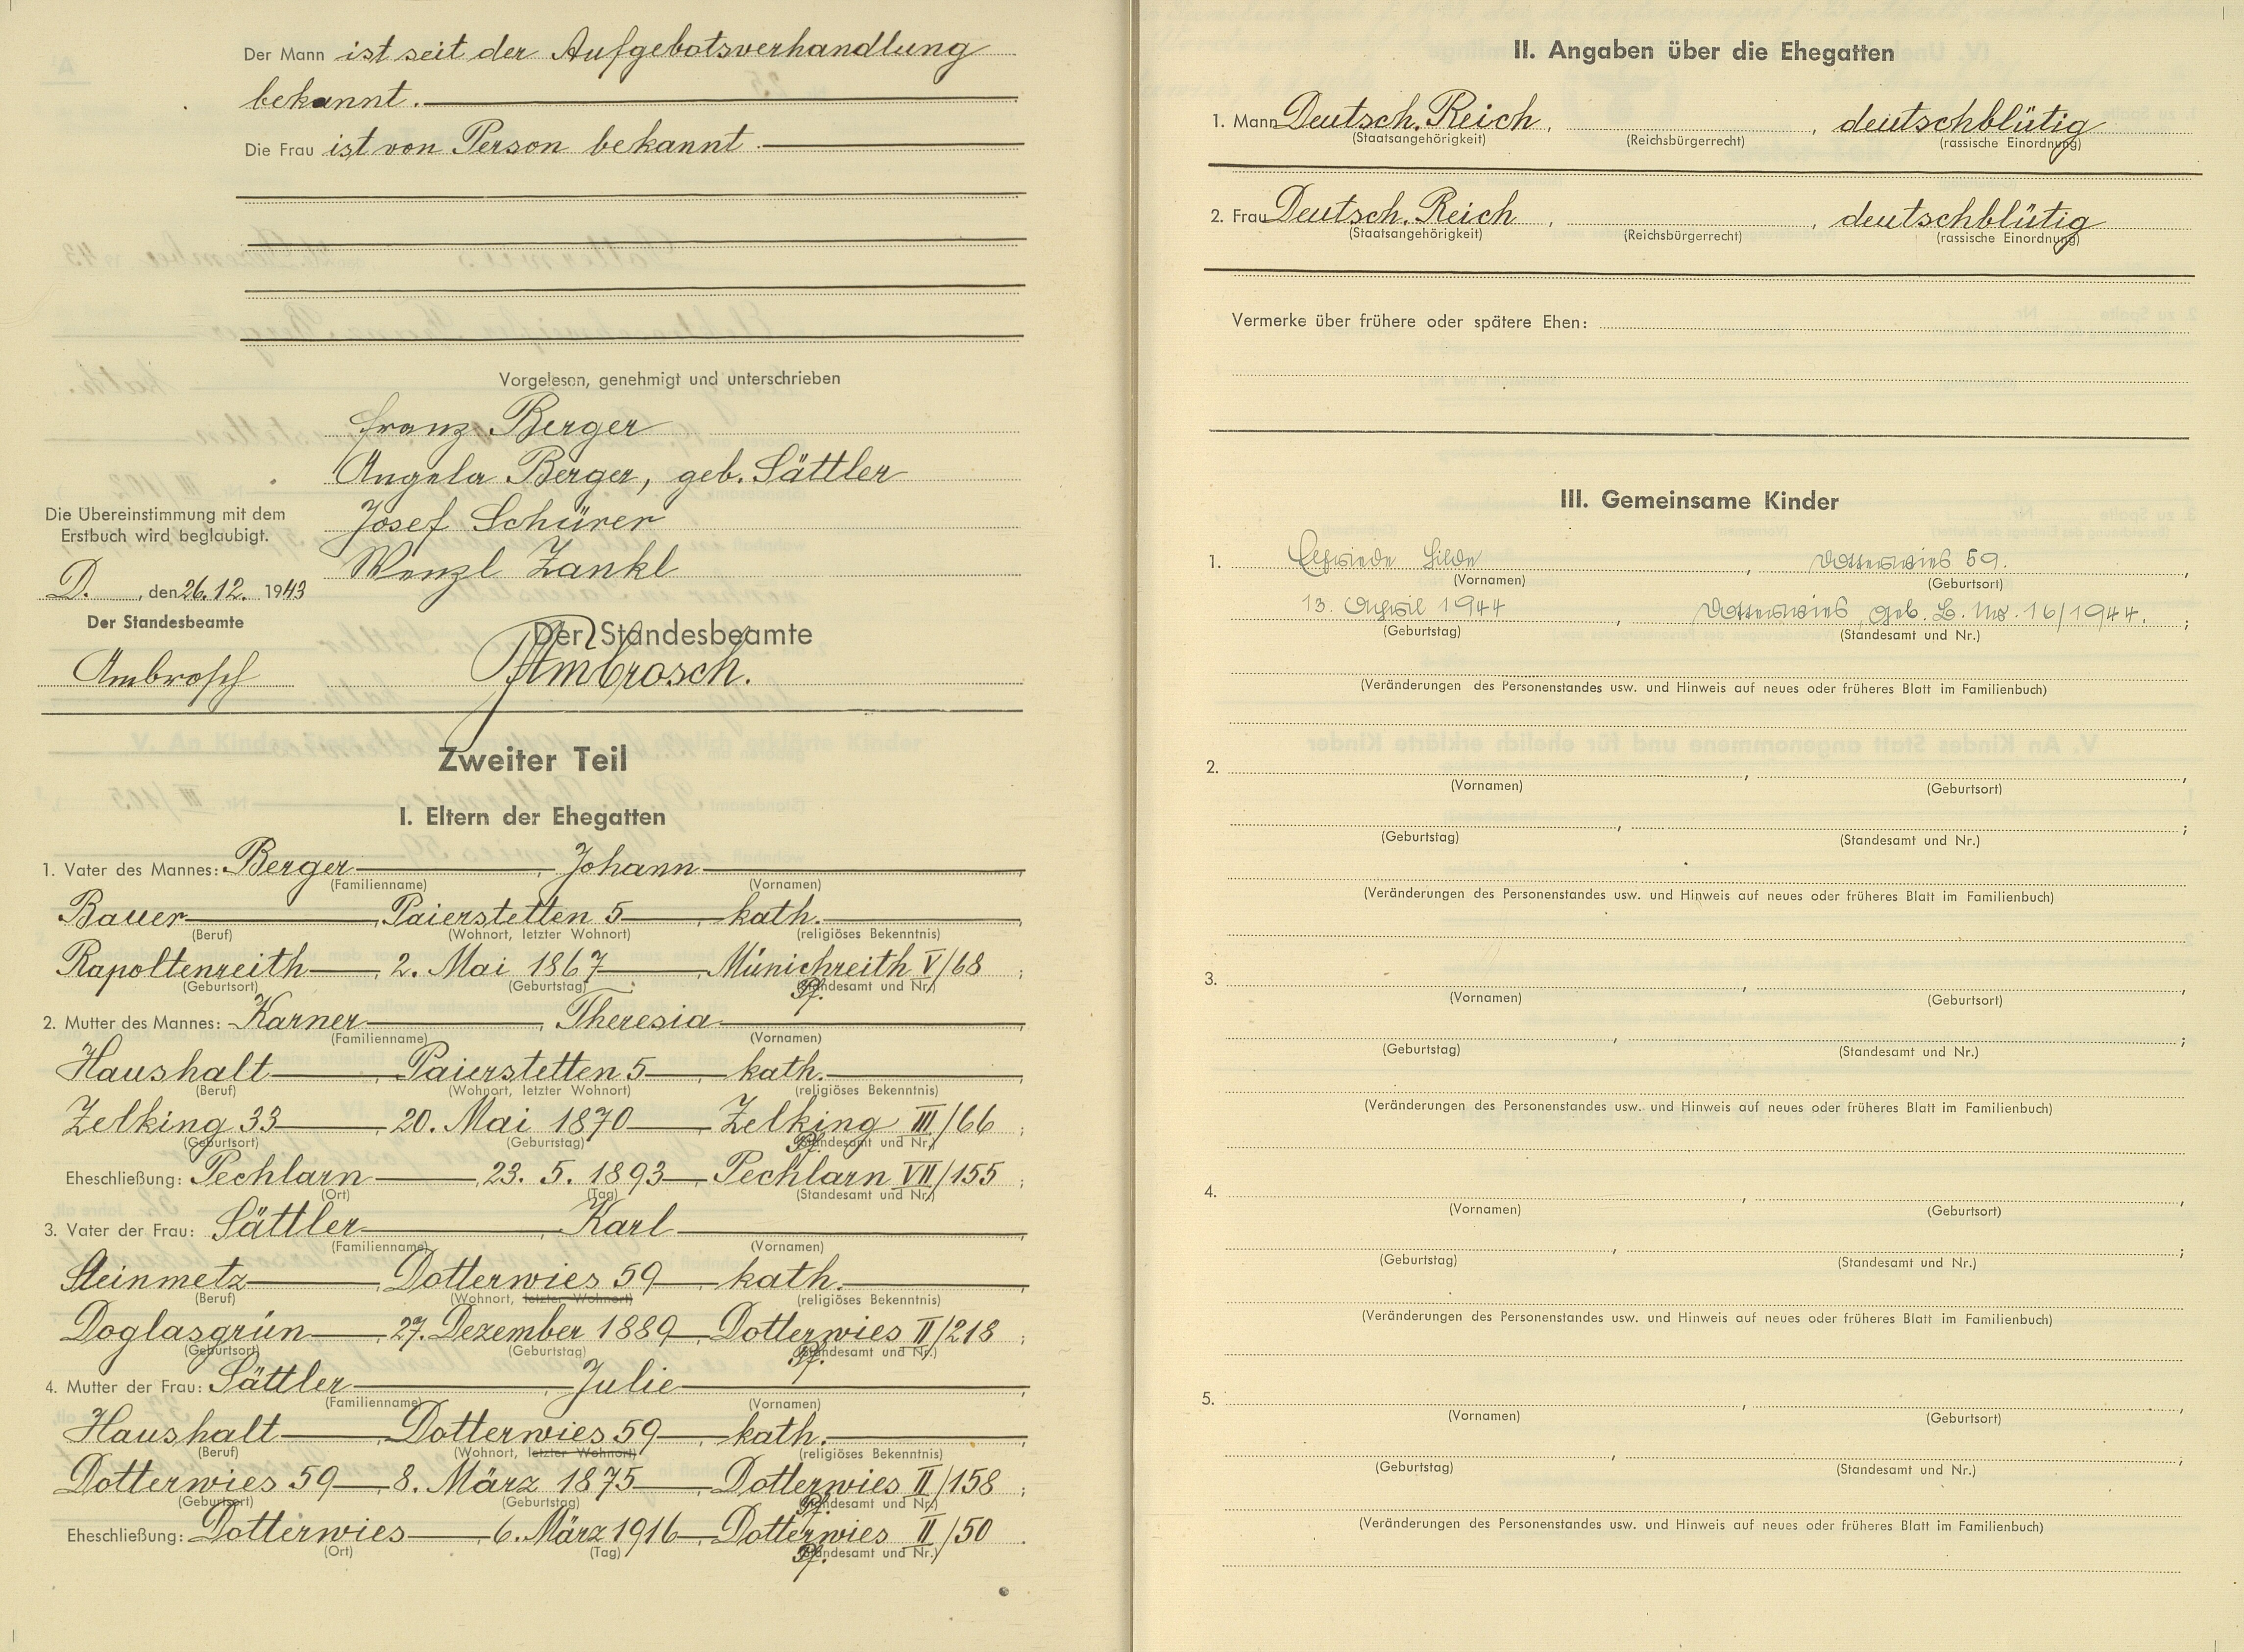 Der Mann ist seit der Aufgebotsverhandlung
bekannt.
Die Frau ist von Person bekannt.
Vorgelesen, genehmigt und unterschrieben
Franz Berger
Angela Berger, geb. Sättler
Josef Schürer
Wenzl Zankl
Die Übereinstimmung mit dem
Erstbuch wird beglaubigt.
D. , den 26.12. 1943
Der Standesbeamte
Ambrosch
Der Standesbeamte
Ambrosch.
Zweiter Teil
I. Eltern der Ehegatten
1. Vater des Mannes: Berger , Johann ,
(Familienname) (Vornamen)
Bauer , Paierstetten 5 , kath. ,
(Beruf) (Wohnort, letzter Wohnort) (religiöses Bekenntnis)
Rapoltenreith , 2. Mai 1867 , Münichreith V/68 ;
(Geburtsort) (Geburtstag) Pf. (Standesamt und Nr.)
2. Mutter des Mannes: Karner , Theresia ,
(Familienname) (Vornamen)
Haushalt , Paierstetten 5 , kath. ,
(Beruf) (Wohnort, letzter Wohnort) (religiöses Bekenntnis)
Zelking 33 , 20. Mai 1870 , Zelking III/66 ;
(Geburtsort) (Geburtstag) Pf. (Standesamt und Nr.)
Eheschließung: Pechlarn , 23. 5. 1893 , Pechlarn VII/155 ;
(Ort) (Tag) (Standesamt und Nr.)
3. Vater der Frau: Sättler , Karl ,
(Familienname) (Vornamen)
Steinmetz , Dotterwies 59 , kath. ,
(Beruf) (Wohnort, letzter Wohnort) (religiöses Bekenntnis)
Doglasgrün , 27. Dezember 1889 , Dotterwies II/218 ;
(Geburtsort) (Geburtstag) Pf. (Standesamt und Nr.)
4. Mutter der Frau: Sättler , Julie ,
(Familienname) (Vornamen)
Haushalt , Dotterwies 59 , kath. ,
(Beruf) (Wohnort, letzter Wohnort) (religiöses Bekenntnis)
Dotterwies 59 , 8. März 1875 , Dotterwies II/158 ;
(Geburtsort) (Geburtstag) Pf. (Standesamt und Nr.)
Eheschließung: Dotterwies , 6. März 1916 , Dotterwies II/50 .
(Ort) (Tag) Pf. (Standesamt und Nr.)
II. Angaben über die Ehegatten
1. Mann Deutsch. Reich , , deutschblütig
(Staatsangehörigkeit) (Reichsbürgerrecht) (rassische Einordnung)
2. Frau Deutsch. Reich , , deutschblütig
(Staatsangehörigkeit) (Reichsbürgerrecht) (rassische Einordnung)
Vermerke über frühere oder spätere Ehen:
III. Gemeinsame Kinder
1. Elfriede Hilde , Dotterwies 59. ,
(Vornamen) (Geburtsort)
13. April 1944 , Dotterwies, Geb. B. Nr. 16/1944. ;
(Geburtstag) (Standesamt und Nr.)
(Veränderungen des Personenstandes usw. und Hinweis auf neues oder früheres Blatt im Familienbuch)
2. , ,
(Vornamen) (Geburtsort)
, ;
(Geburtstag) (Standesamt und Nr.)
(Veränderungen des Personenstandes usw. und Hinweis auf neues oder früheres Blatt im Familienbuch)
3. , ,
(Vornamen) (Geburtsort)
, ;
(Geburtstag) (Standesamt und Nr.)
(Veränderungen des Personenstandes usw. und Hinweis auf neues oder früheres Blatt im Familienbuch)
4. , ,
(Vornamen) (Geburtsort)
, ;
(Geburtstag) (Standesamt und Nr.)
(Veränderungen des Personenstandes usw. und Hinweis auf neues oder früheres Blatt im Familienbuch)
5. , ,
(Vornamen) (Geburtsort)
, ;
(Geburtstag) (Standesamt und Nr.)
(Veränderungen des Personenstandes usw. und Hinweis auf neues oder früheres Blatt im Familienbuch)